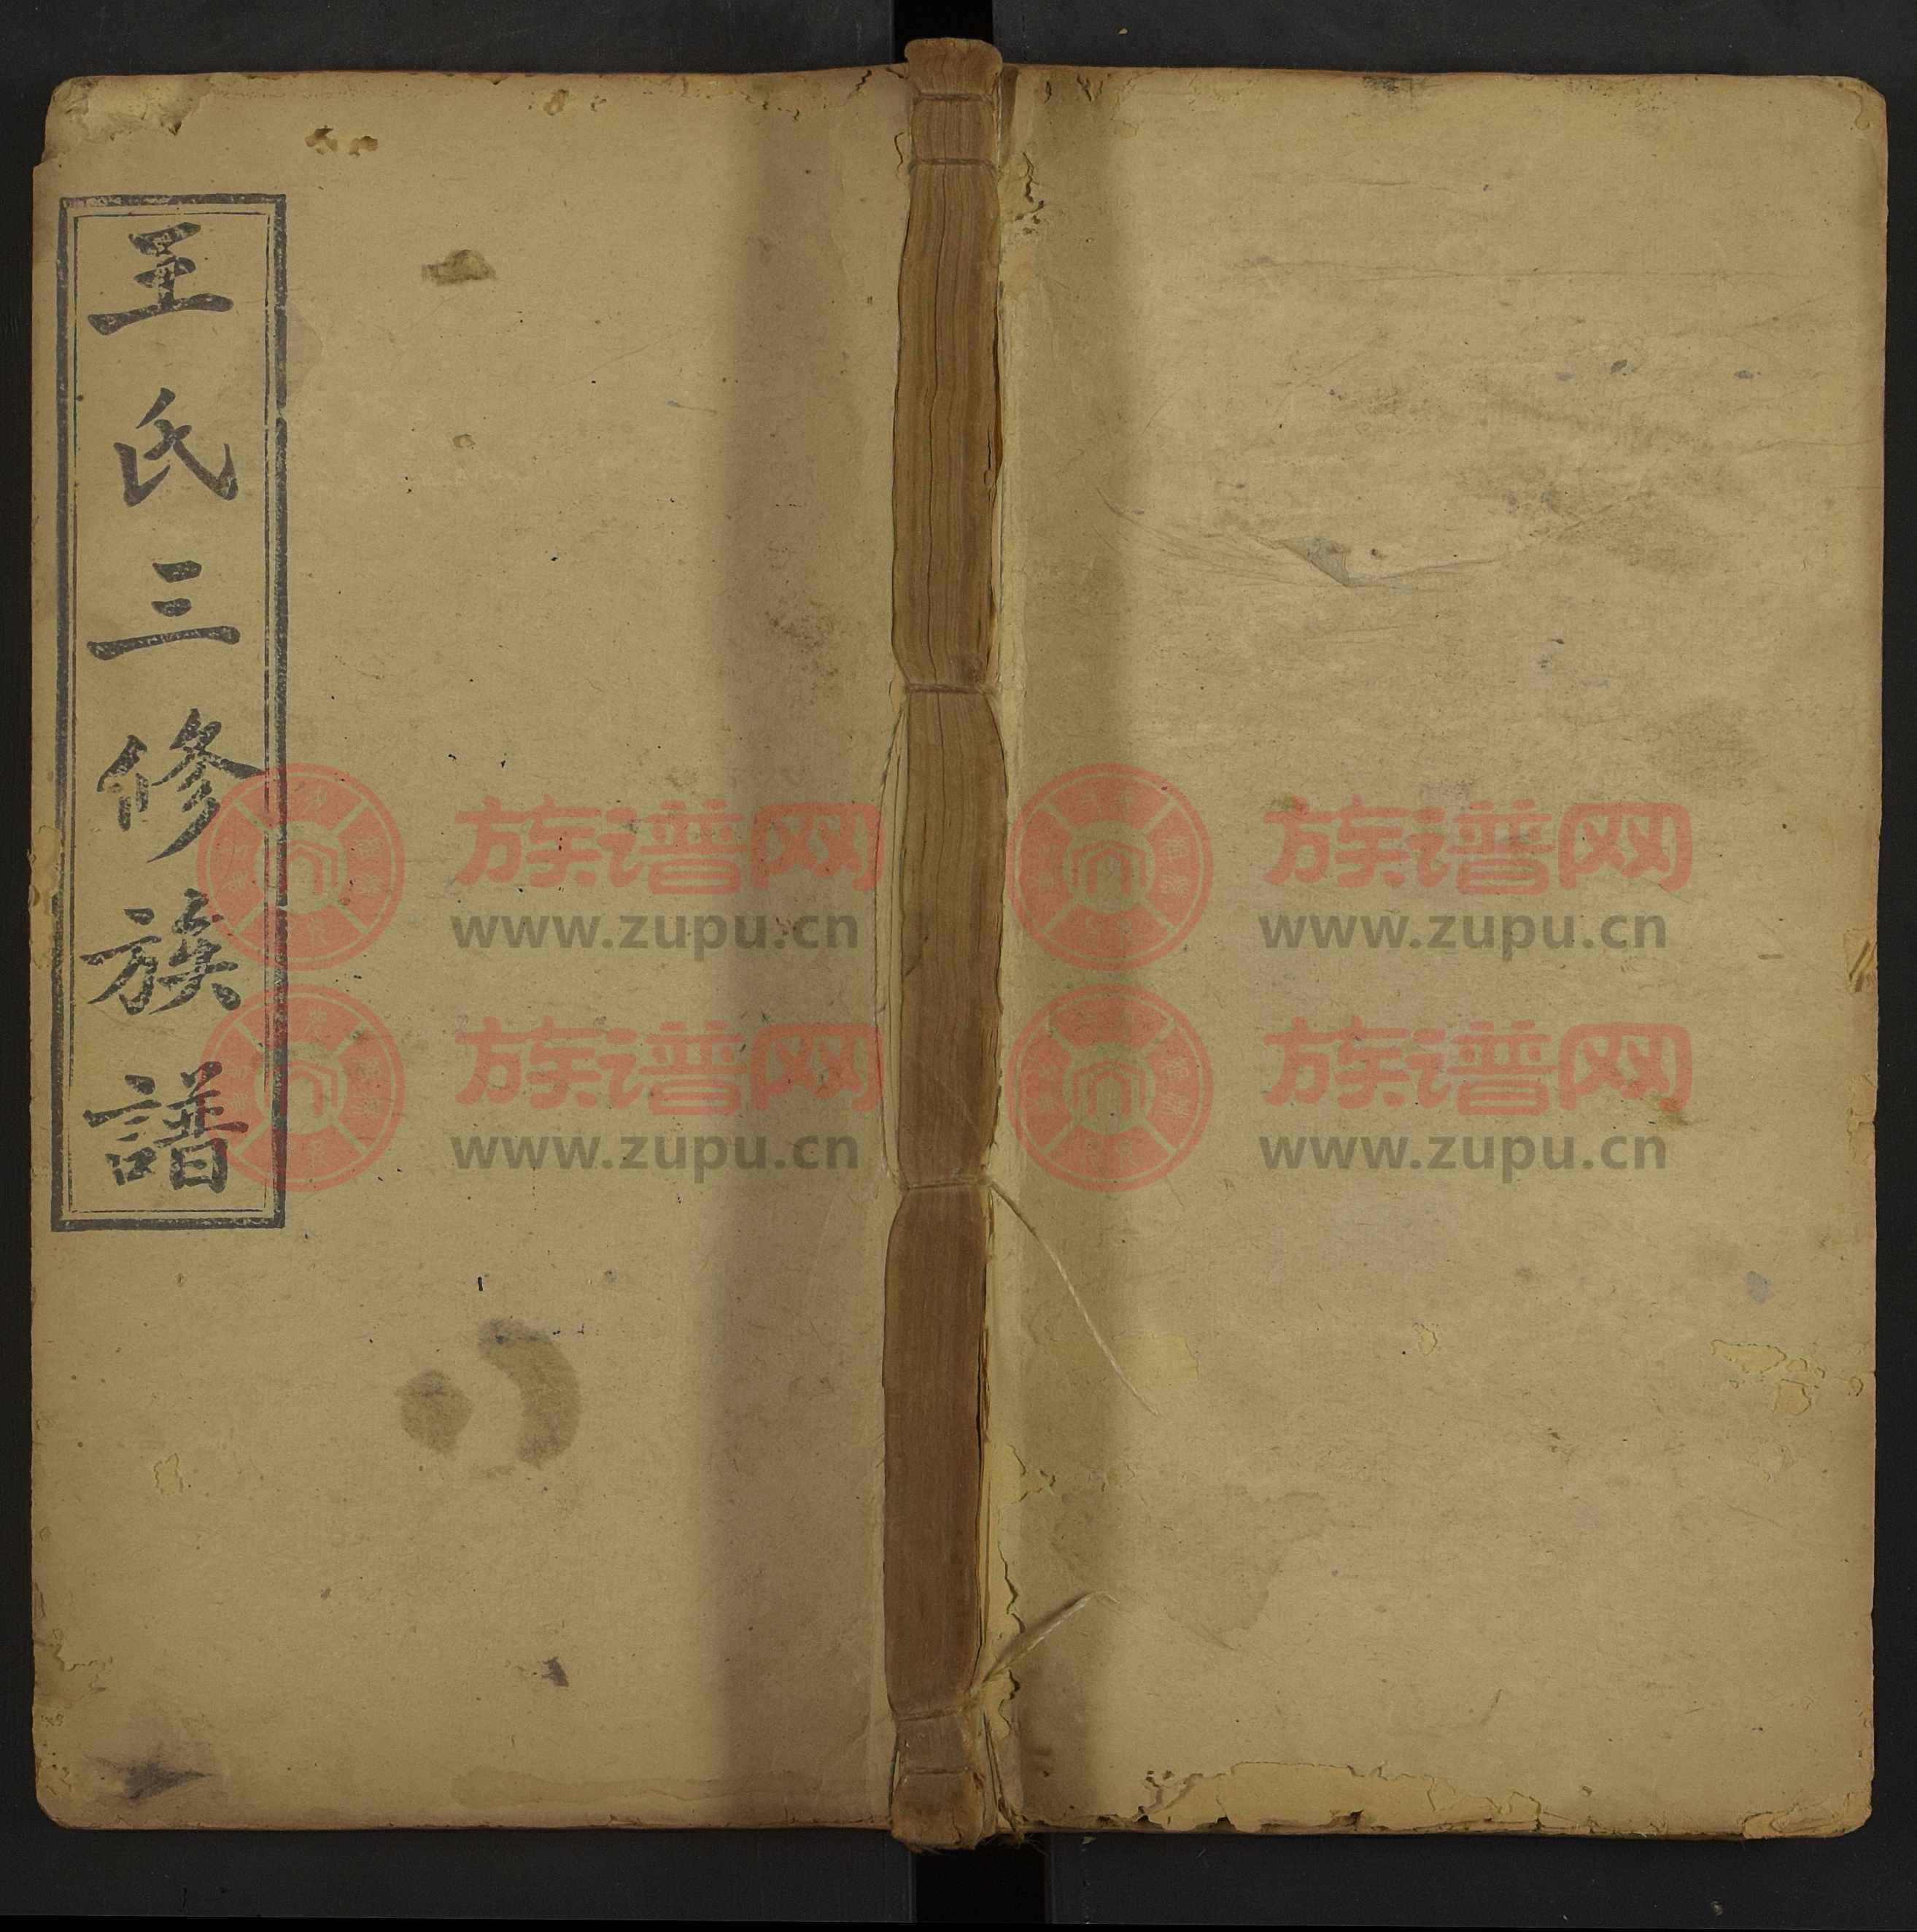 王氏三修族譜
族谱网
www.zupu.cn
族谱网
www.zupu.cn
族谱网
www.zupu.cn
族谱网
www.zupu.cn